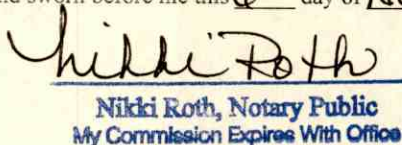 sworn before me this 6 day of
Nikki Roth
Nikki Roth, Notary Public
My Commission Expires With Office